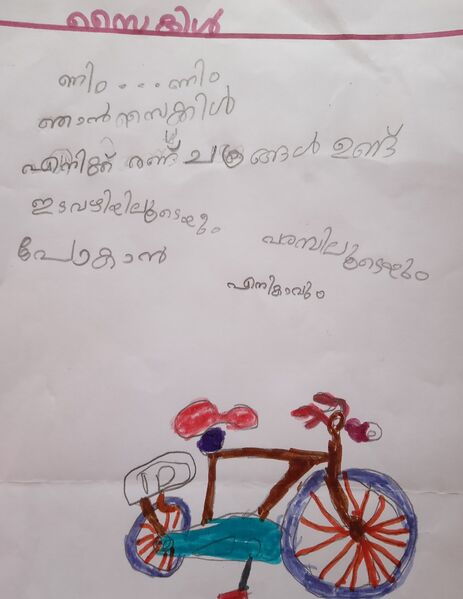 സൈക്കിൾ
ണിം...ണിം
ഞാൻ സൈക്കിൾ
എനിക്ക് രണ്ട് ചക്രങ്ങൾ ഉണ്ട്
ഇടവഴിയിലൂടെയും
പറമ്പിലൂടെയും
പോകാൻ
എനികാവും